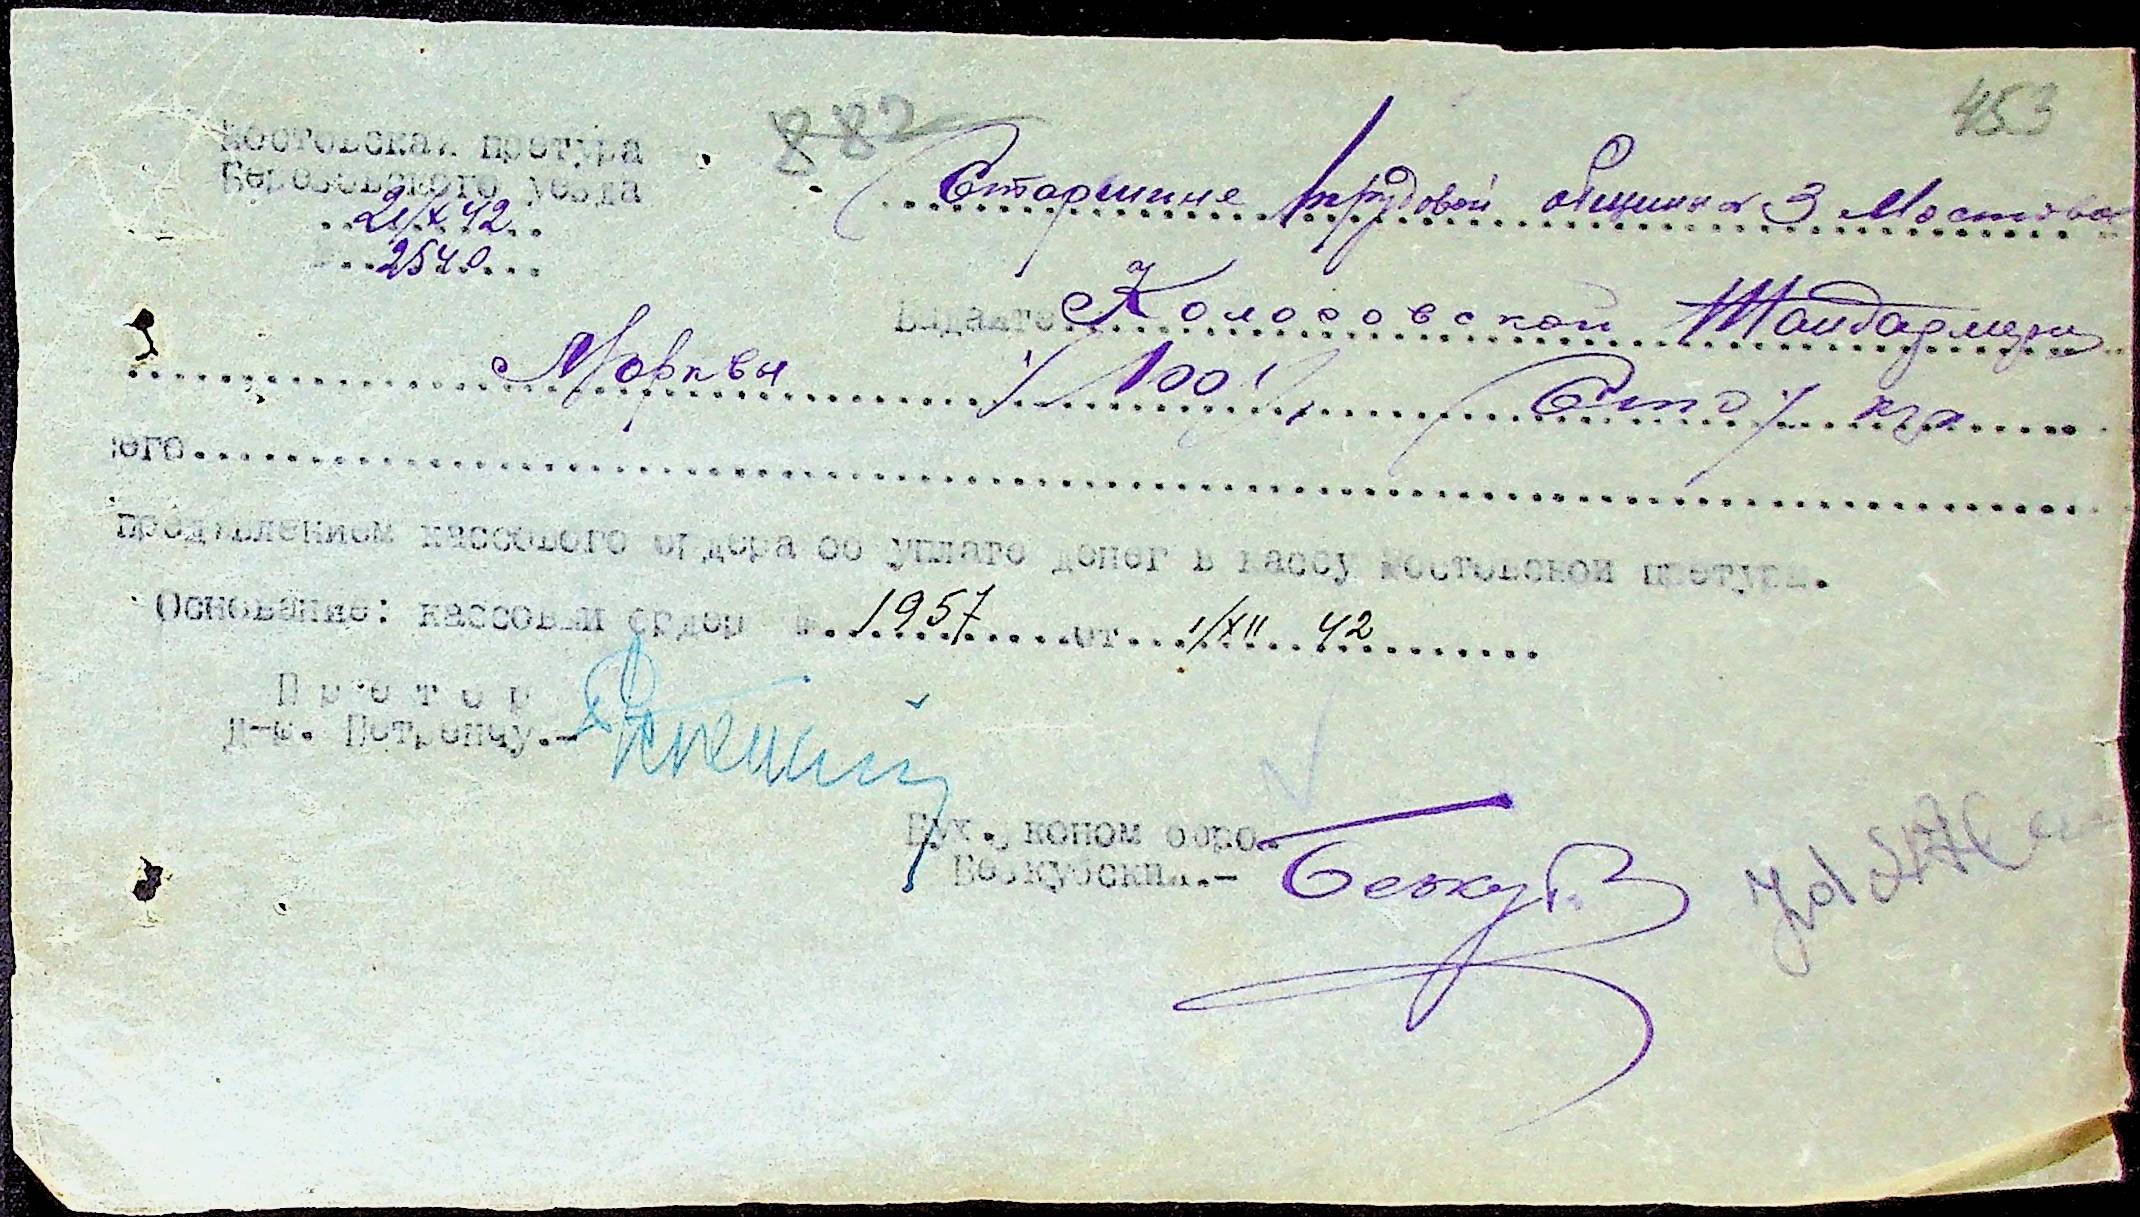 453
882
Мостовская претура
Березовского уезда
21/X 42
2540
Старшине трудовой общины 3 Мостовая
Выдайте Колосовской Жандармерии
Моркви /100/ /Сто/ кгр
его
предявлением кассового ордера об уплате денег в кассу Мостовской претуры.
Основание: кассовый ордер № 1957 от 1/XII 42
Претор
Д-ж. Петренчу.-
Бух. эконом бюро
Безкубский.-